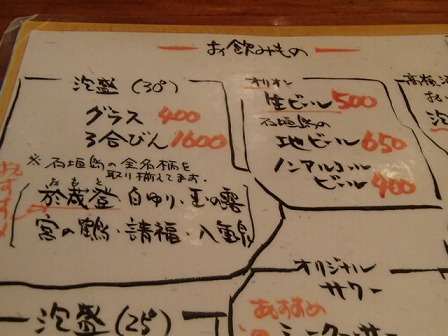 お飲みもの
泡盛 (30°)
グラス 400
3合びん 1600
※石垣島の全銘柄を
取り揃えてます。
おすすめ
於茂登 白ゆり・玉の露
宮の鶴・請福・八重泉
オリオン
生ビール 500
石垣島の
地ビール 650
ノンアルコール
ビール 400
泡盛 (25°)
オリジナル
サワー
おすすめ
シークヮーサー